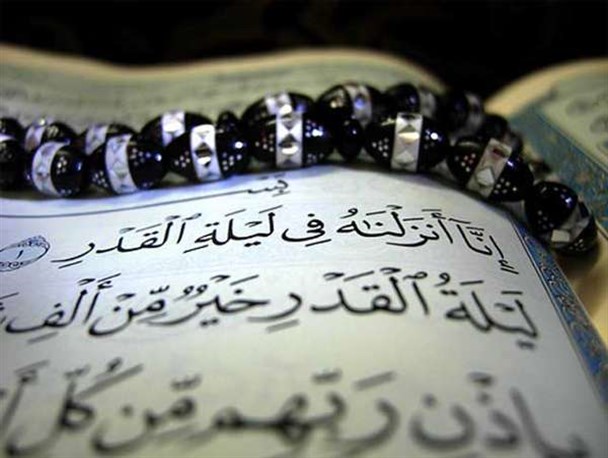 إِنَّا أَنزَلْنَـٰهُ فِى لَيْلَةِ ٱلْقَدْرِ ١
لَيْلَةُ ٱلْقَدْرِ خَيْرٌ مِّنْ أَلْفِ
بِإِذْنِ رَبِّهِم مِّن كُلِّ